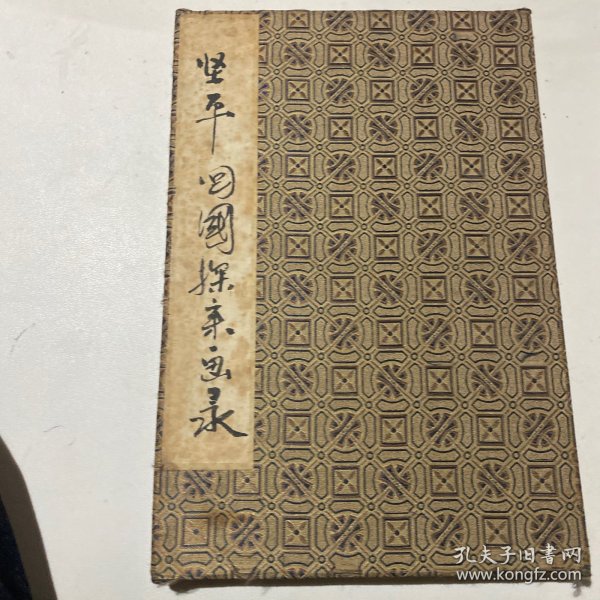 坚平回國探亲画录
孔夫子旧書网
www.kongfz.com